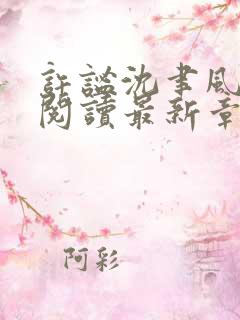 許謐沈聿風
閱讀最新章
阿彩